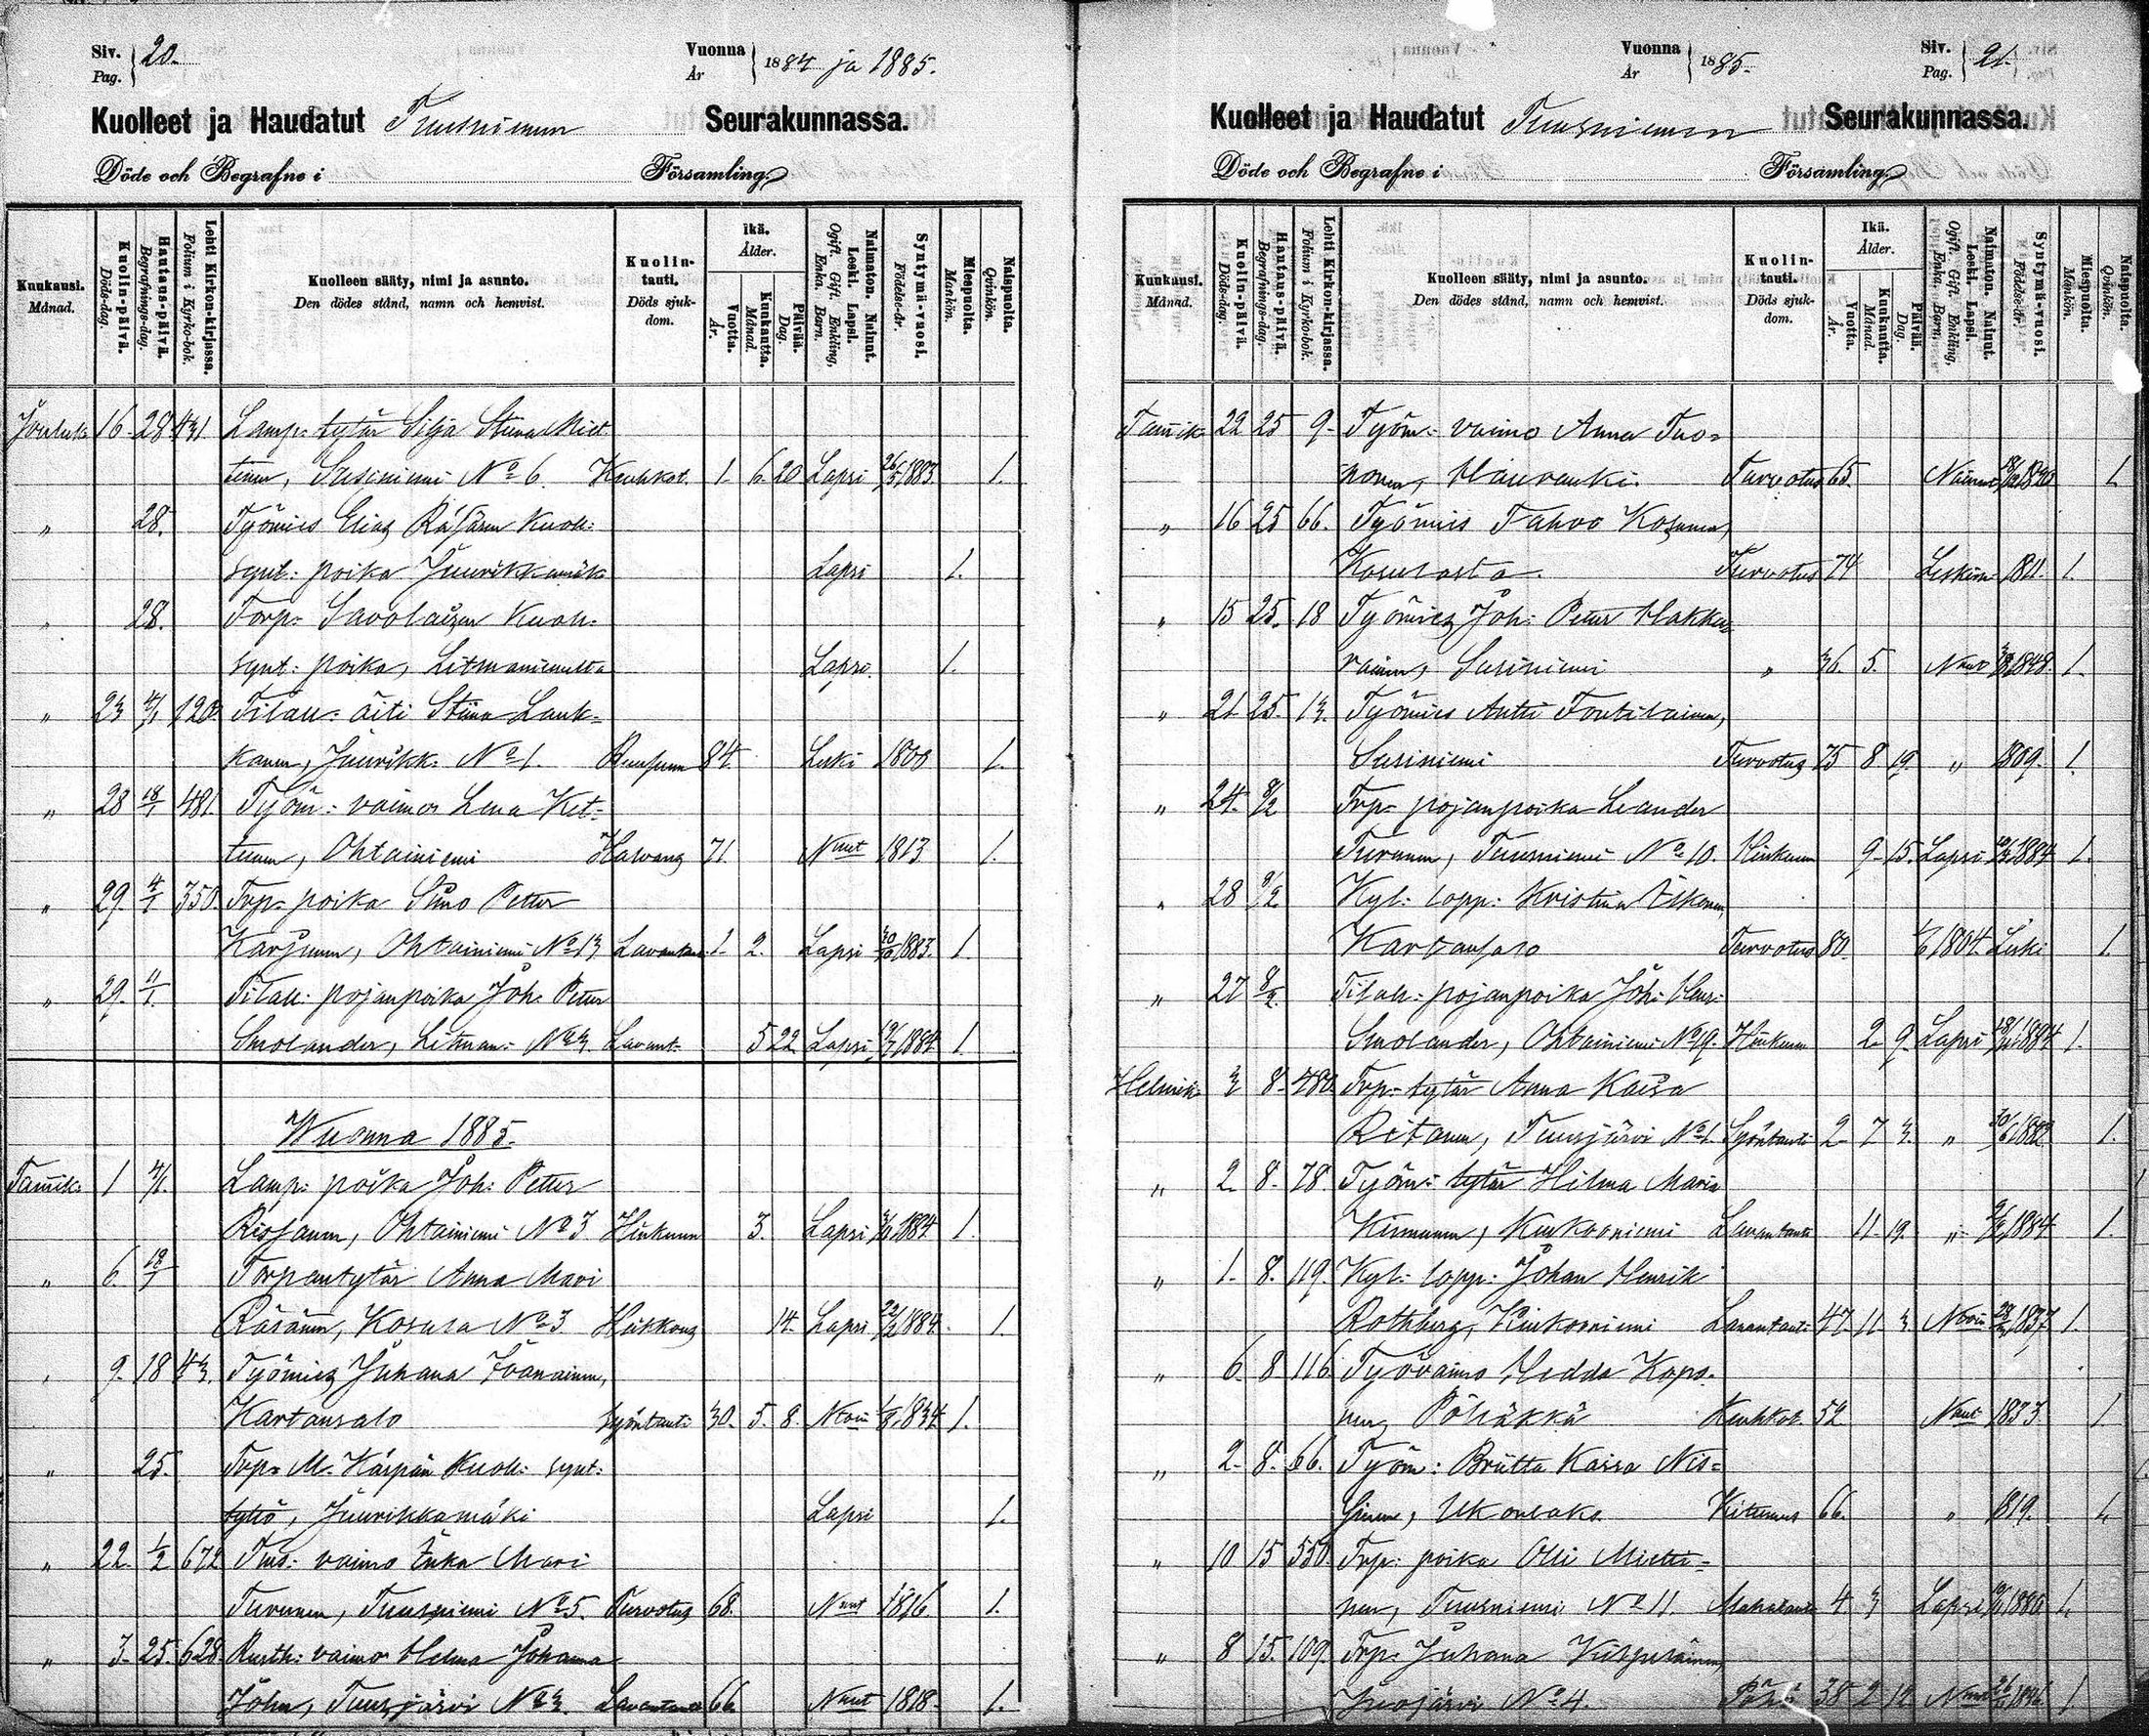 Siv. Pag. 20.
Vuonna År 1884 ja 1885.
Kuolleet ja Haudatut Tuusniemen Seurakunnassa.
Döde och Begrafne i Församling.
Kuukausi. Månad.
Kuolin-päivä. Döds-dag.
Hautaus-päivä. Begrafnings-dag.
Lehti Kirkon-kirjassa. Folium i Kyrko-bok.
Kuolleen sääty, nimi ja asunto. Den dödes stånd, namn och hemvist.
Kuolin-tauti. Döds sjuk-dom.
Ikä. Ålder.
Vuotta. År.
Kuukautta. Månad.
Päivää. Dag.
Naimaton. Nainut. Leski. Lapsi. Ogift. Gift. Enkling, Enka. Barn.
Syntymä-vuosi. Födelse-år.
Miespuolta. Mankön.
Naispuolta. Qvinkön.
Jouluk. 16. 28. 431 Lamp: tytär Silja Stiina Miet-
tinen, Susiniemi No 6. Keuhkot. 1. 6. 20 Lapsi 26/5 1883. 1.
" 28. Työmies Elias Räsäsen kuoll:
synt: poika Juurikkamäk Lapsi 1.
" 28. Torp: Savolaisen kuoll:
synt: poika, Litmaniemeltä Lapsi. 1.
" 23 4/1 120. Tilall: äiti Stiina Lauk-
kanen, Juurikk: No 1. 84. Leski 1800 1.
" 28 18/1 481. Työm: vaimo Lena Ket-
tunen, Ohtainiemi Halvaus 71. Nnut 1813 1.
" 29. 4/1 350. Torp: poika Simo Petter
Karjunen, Ohtainiemi No 13 1. 2. Lapsi 30/10 1883. 1.
" 29. 11/1. Tilall: pojanpoika Joh: Petter
Smolander, Litman: No 3. Lavant: 5 22 Lapsi 1884 1.
Wuonna 1885.
Tamik: 1 4/1. Lamp: poika Joh: Petter
Rissanen, Ohtainiemi No 3 Hinkunen 3. Lapsi 1884 1.
" 6. 18/1 Torpantytär Anna Mari
Räsänen, Kosula No 3. 14. Lapsi 22/12 1884. 1.
" 9. 18 43. Työmies Juhana Ivanainen,
Kartansalo Syöntauti 30. 5. 8. Ntoin 1834 1.
" 25. Torp: M. Kärpän kuoll: synt:
tyttö, Juurikkamäki Lapsi 1.
" 22. 1/2 672 vaimo Mari
Turunen, Tuusniemi No 5. Turvotus 68. Nnut 1816 1.
" 3. 25. 628. Rusth: vaimo Helena Johanna
John, Tuusjärvi No 3. Lavantauti 66. Nnut 1818. 1.
Vuonna År 1885.
Siv. Pag. 21.
Kuolleet ja Haudatut Tuusniemen Seurakunnassa.
Döde och Begrafne i Församling.
Kuukausi. Månad.
Kuolin-päivä. Döds-dag.
Hautaus-päivä. Begrafnings-dag.
Lehti Kirkon-kirjassa. Folium i Kyrko-bok.
Kuolleen sääty, nimi ja asunto. Den dödes stånd, namn och hemvist.
Kuolin-tauti. Döds sjuk-dom.
Ikä. Ålder.
Vuotta. År.
Kuukautta. Månad.
Päivää. Dag.
Naimaton. Nainut. Leski. Lapsi. Ogift. Gift. Enkling, Enka. Barn.
Syntymä-vuosi. Födelse-år.
Miespuolta. Mankön.
Naispuolta. Qvinkön.
Tamik: 22 25 9. Työm: vaimo Anna Tuo-
nonen, Turvotus 65. Nainut 1.
" 16 25 66. Työmies Tahvo Kosunen,
Kosulasta. Turvotus 74 Leskim 1811. 1.
" 15 25. 18 Työmies Joh: Petter Hakka-
rainen, Susiniemi " 36. 5. Nnut 1848. 1.
" 21 25. 13. Työmies Antti Tontilainen,
Susiniemi Turvotus 75 8 19. " 1809. 1.
" 24. 8/2 Torp: pojanpoika Leander
Turunen, Tuusniemi No 10. Hinkunen 9. 15. Lapsi 1884 1.
" 28 9/2. Kyl: lopp: Kristiina
Kartansalo Turvotus 80. 1804. Leski 1.
" 27 8/2. Tilall: pojanpoika Joh: Henr:
Smolander, Ohtainiemi No 19. Hinkunen 2. 9. Lapsi 18/11 1884 1.
Helmik: 3 8. 480. Torp: tytär Anna Kaisa
Ritanen, Tuusjärvi No 1. Syöntauti 2 7 3. " 1882 1.
" 2. 8. 78. Työm: tytär Hilma Maria
Hirvonen, Lavantauti 11. 19. " 1884 1.
" 1. 8. 119. Kyl: lopp: Johan Henrik
Rothberg, Lavantauti 47 11 3. 28/2 1837 1.
" 6. 8. 116. Työvaimo Hedda Kopo-
nen, Pöhäkkä Keuhkot. 52 Nnut 1833 1.
" 2. 8. 66. Työm: Briitta Kaisa Nis-
sinen, Ukonlaks. Kitumus 66. " 1819. 1.
" 10 15 550. Torp: poika Olli Mietti-
nen, Tuusniemi No 11. 4 3 Lapsi 1880 1.
" 8 15. 109. Torp: Juhana
Juojärvi No 4. 38 2 12 Nnut 1846 1.